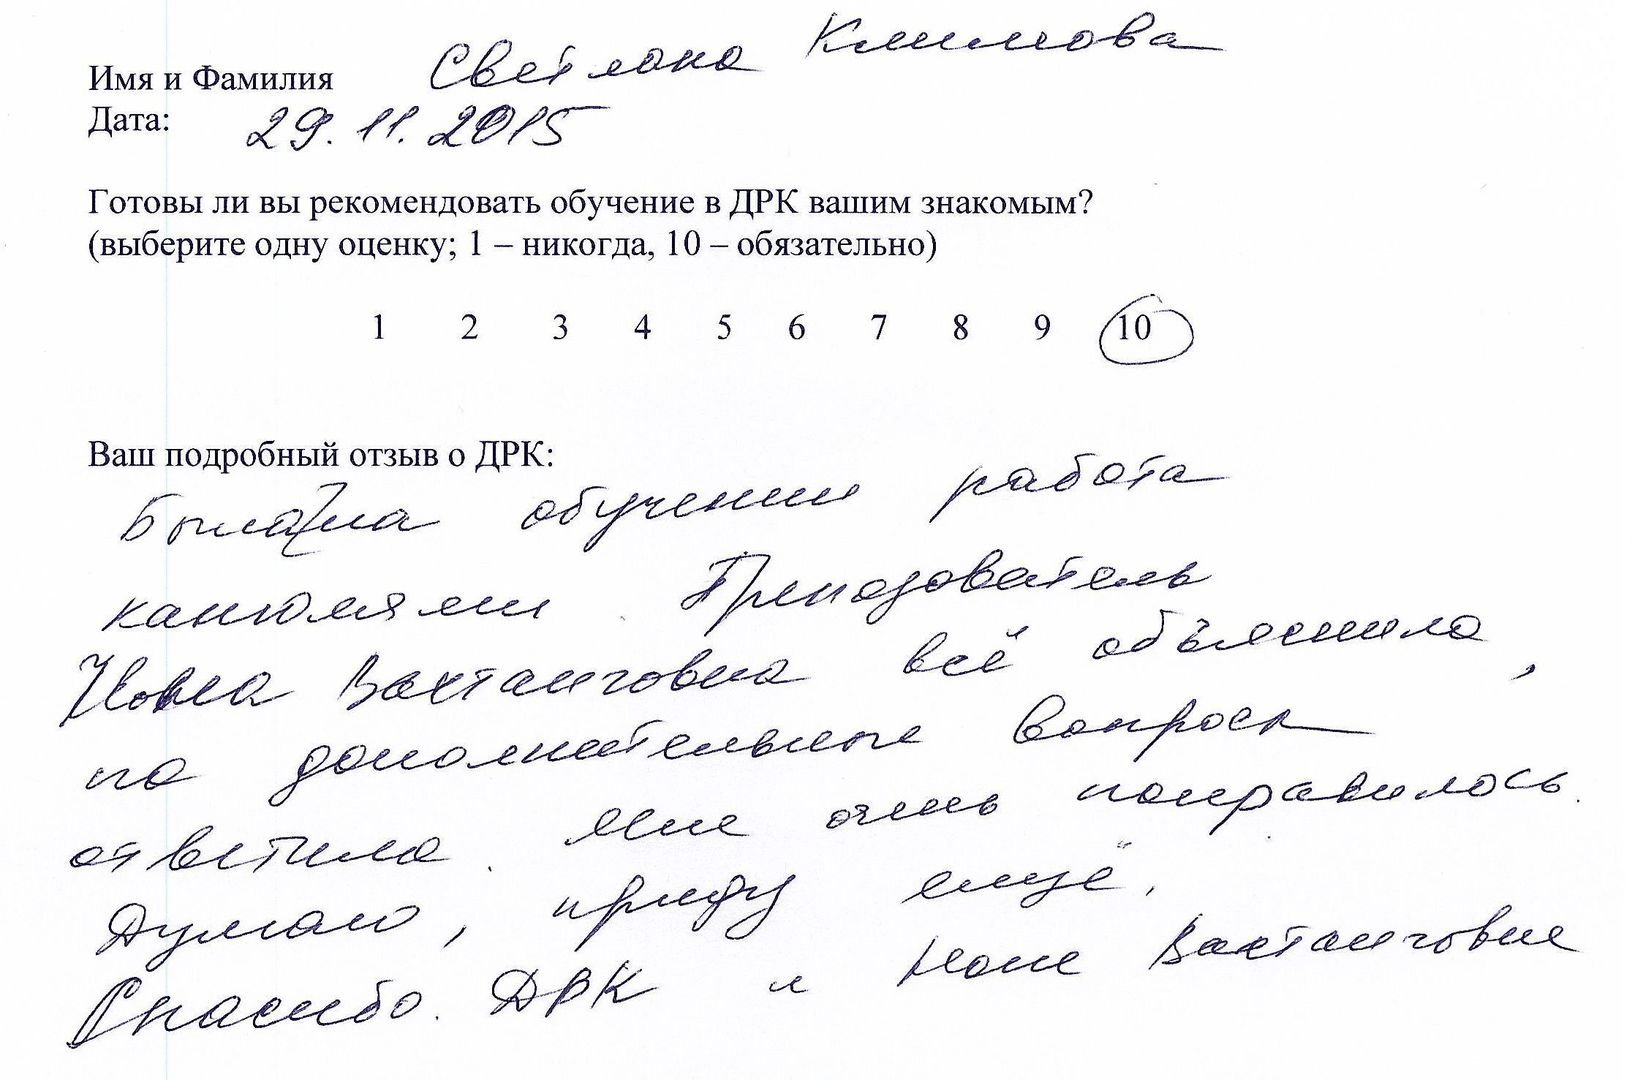 Имя и Фамилия Светлана Климова
Дата: 29.11.2015
Готовы ли вы рекомендовать обучение в ДРК вашим знакомым?
(выберите одну оценку; 1 – никогда, 10 – обязательно)
1 2 3 4 5 6 7 8 9 10
Ваш подробный отзыв о ДРК:
Была на обучении работа
канюлями. Преподователь
Нонна Вахтанговна всё объяснила,
на дополнительные вопросы
ответила. Мне очень понравилось.
Думаю, приду ещё.
Спасибо. ДРК и Ноне Вахтанговне